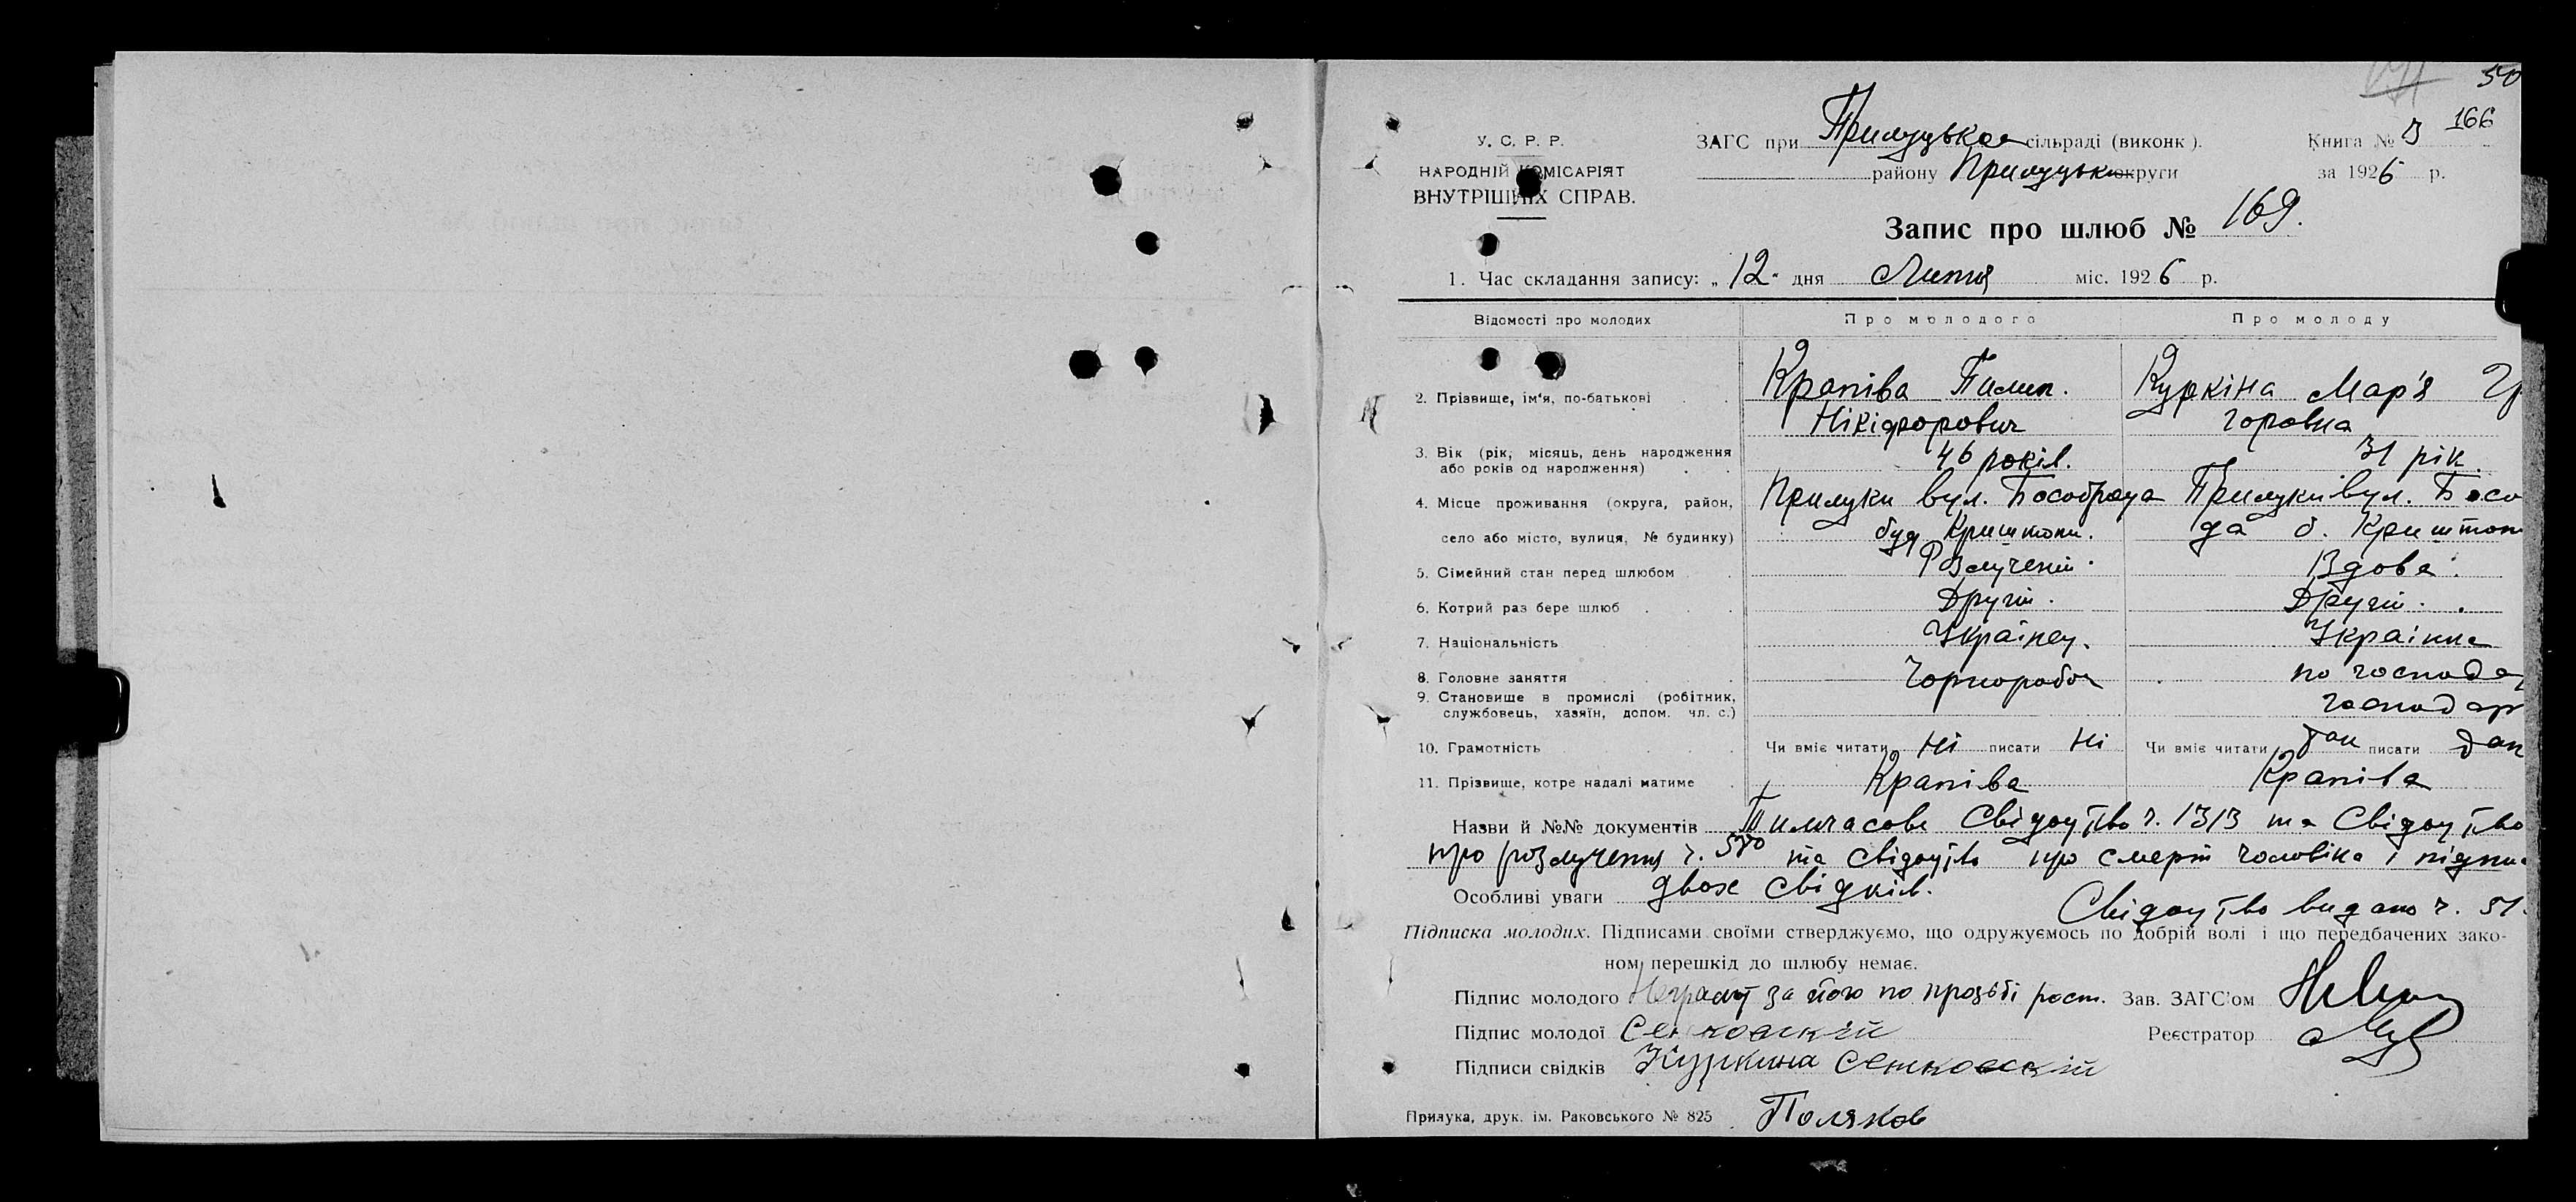 50
166
У. С. Р. Р.
НАРОДНІЙ КОМІСАРІЯТ
ВНУТРІШНІХ СПРАВ.
ЗАГС при Прилуцькое сільраді (виконк).
району Прилуцьк округи
Книга № 3
за 1926 р.
Запис про шлюб № 169.
1. Час складання запису: „12" дня Липня міс. 1926 р.
Відомості про молодих
Про молодого
Про молоду
2. Прізвище, ім'я, по-батькові
Крапіва Пилип.
Нікіфорович
Куркіна Мар'я Гр
горовна
3. Вік (рік, місяць, день народження
або років од народження)
46 років.
31 рік.
4. Місце проживання (округа, район,
село або місто, вулиця, № будинку)
Прилуки вул.
буд
Прилуки вул.
да б.
5. Сімейний стан перед шлюбом
Розлучений.
Вдова.
6. Котрий раз бере шлюб
Другий.
Другий.
7. Національність
Українец.
Українка
8. Головне заняття
Чорнороboч
по господар
9. Становище в промислі (робітник,
службовець, хазяїн, допом. чл. с.)
господар
10. Грамотність
Чи вміє читати Ні писати Ні
Чи вміє читати так писати так
11. Прізвище, котре надалі матиме
Крапіва
Крапіва
Назви й №№ документів Тимчасове Свідоцтво ч. 1313 та Свідоцтво
про розлучення ч. 580 та свідоцтво про смерть чоловіка і підпи
Особливі уваги двох свідків.
Свідоцтво видано ч. 51.
Підписка молодих. Підписами своїми стверджуємо, що одружуємось по добрій волі і що передбачених зако-
ном перешкід до шлюбу немає.
Підпис молодого Неграмот за його по прозьбі росп.
Зав. ЗАГС'ом
Підпис молодої Сенковскій
Реєстратор
Підписи свідків Куркина Сенковскій
Поляков
Прилука, друк. ім. Раковського № 825